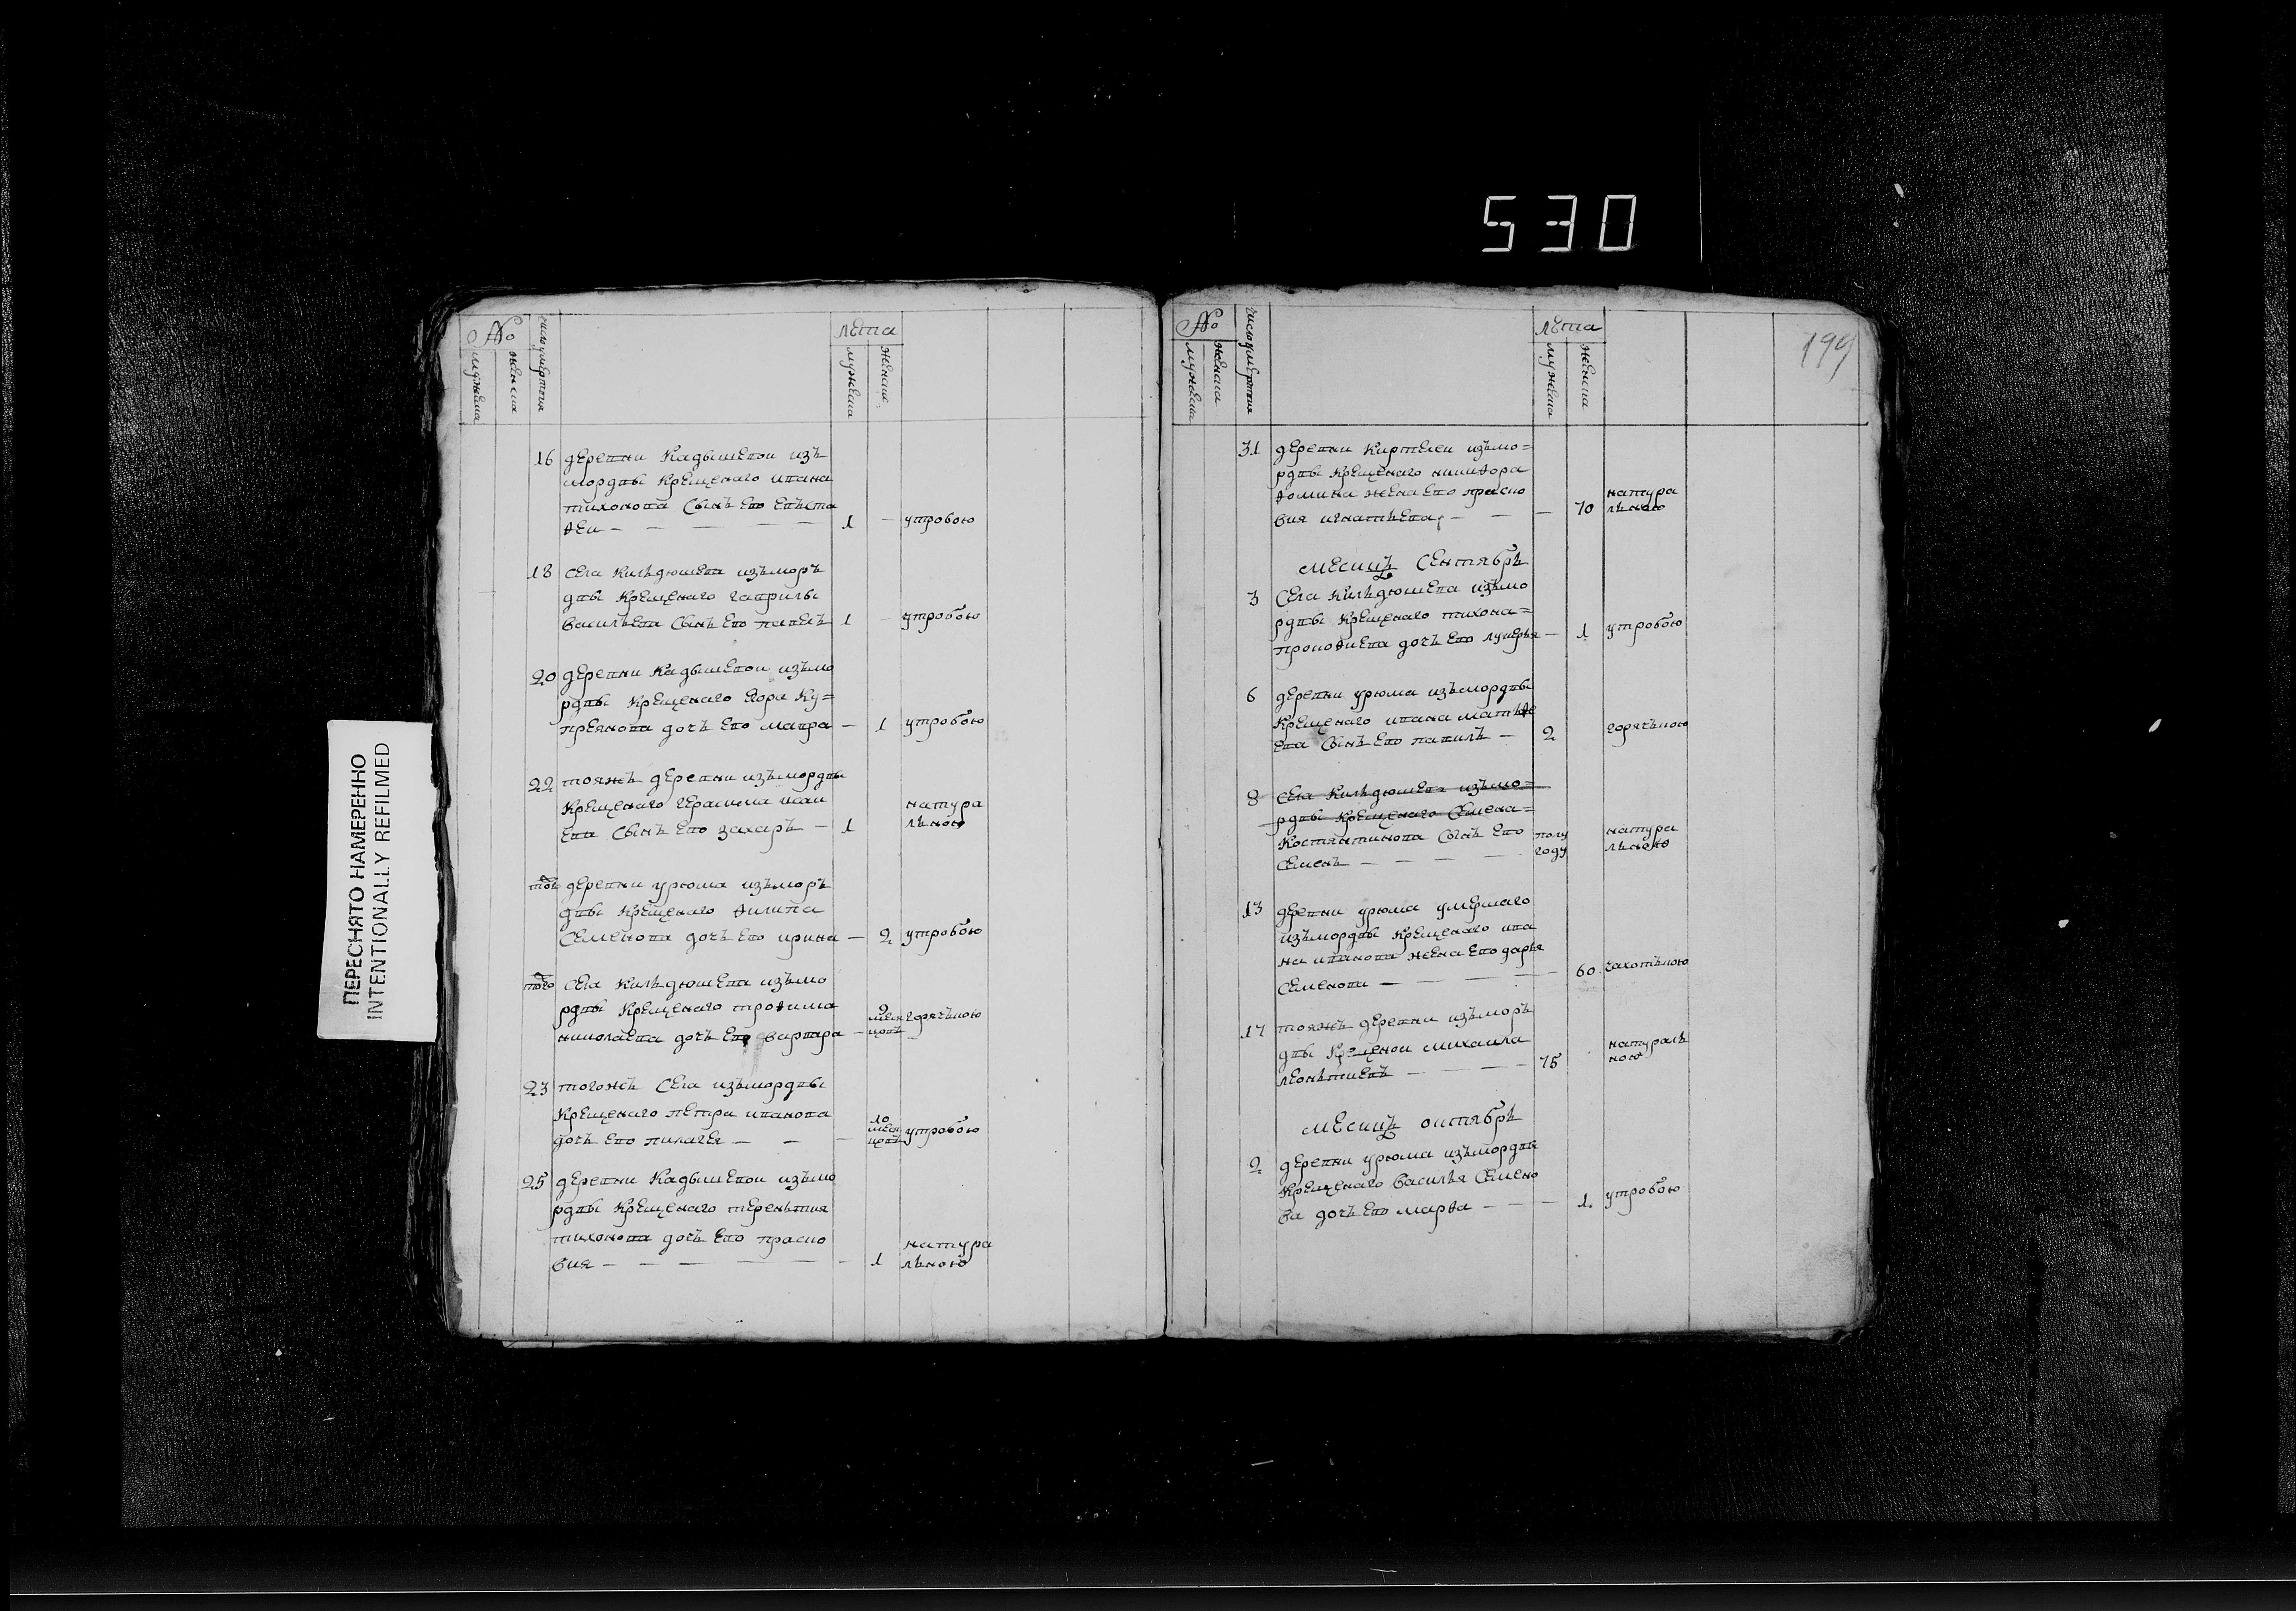 530
ПЕРЕСНЯТО НАМЕРЕННО
INTENTIONALLY REFILMED
№
мужеска
женска
число умертвия
лета
мужеска
женска
16 деревни Кадышевои изъ
мордвы крещенаго ивана
тихонова сынъ ево евъста
феи — — — — 1 — утробою
18 села Кильдюшева изъморъ
двы крещенаго гаврилы
васильева сынъ ево павелъ 1 — утробою
20 деревни Кадышевои изъмо
рдвы крещенаго егора ку=
преянова дочь ево мавра — 1 утробою
22 тояжъ деревни изъмордвы
крещенаго герасима исаи
ева сынъ ево захаръ — 1 натура
льною
того деревни урюма изъморъ
двы крещенаго филипа
семенова дочь ево ирина — 2 утробою
того села Кильдюшева изъмо
рдвы крещенаго трофима
николаева дочь ево варвара — 2 меся
цовъ горячъкою
23 тогожъ села изъмордвы
крещенаго петра иванова
дочь ево пилагея — — — 10 меся
цовъ утробою
25 деревни Кадышевои изъмо
рдвы крещенаго терентия
тихонова дочь ево праско
вия — — — — — 1 натура
льною
199
№
мужеска
женска
число умертвия
лета
мужеска
женска
31 деревни Киртелеи изъмо=
рдвы крещенаго никифора
фомина жена ево праско
вия игнатьева — — — 70 натура
льною
месицъ сентябрь
3 села Кильдюшева изъмо
рдвы крещенаго тихона=
прокофиева дочь ево лукерья — 1 утробою
6 деревни урюма изъмордвы
крещенаго ивана матьфе
ева сынъ ево павилъ — 2 горячъкою
8 села Кильдюшева изъмо=
рдвы крещенаго семена=
костянтинова сынъ ево
семенъ — — — — полу
году натура
льною
13 деревни урюма умершаго
изъмордвы крещенаго ива
на иванова жена ево дарья
семенова — — — — 60 чахоткою
17 тояжъ деревни изъморъ
двы крещенои михаила
леонътиевъ — — — — 75 натураль
ною
месицъ октябрь
2 деревни урюма изъмордвы
крещенаго василья семено
ва дочь ево марфа — — — 1 утробою